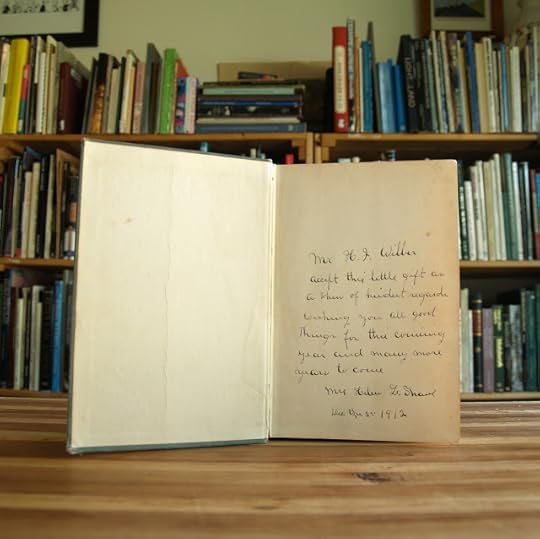 Mr H. F. Wilber
accept this little gift as
a show of kindest regards
wishing you all good
things for this coming
year and many more
years to come
Mrs Helen L.
Dec 25 1912